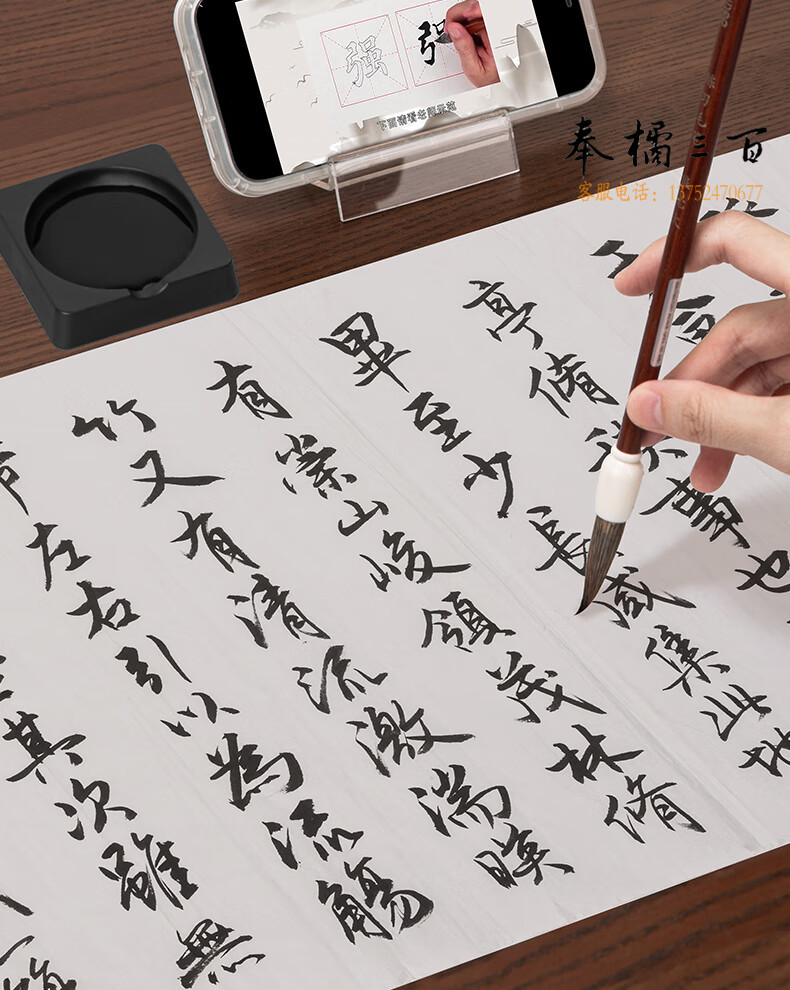 强 强
下面请看老师示范
奉橘三百
客服电话：13752470677
亭脩禊事也
畢至少長咸集此地
有崇山峻領茂林脩
竹又有清流激湍暎
左右引以為流觴
其次雖無